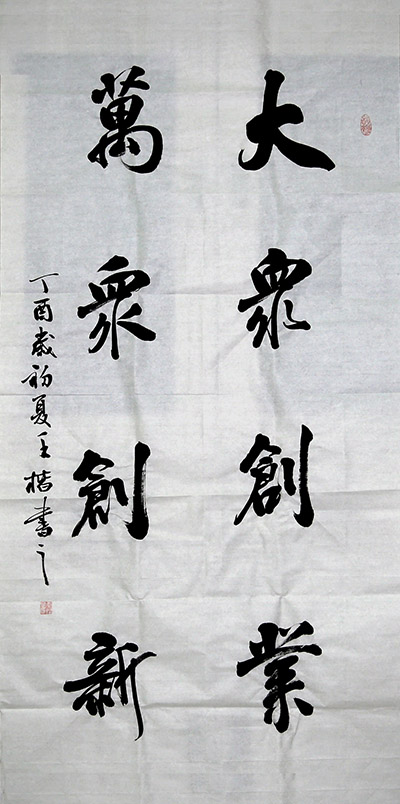 大衆創業
萬衆創新
丁酉歲初夏王楷書之